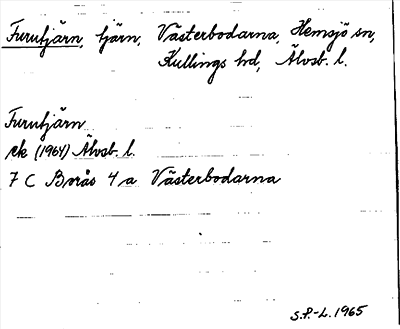 Furutjärn, tjärn, Västerbodarna, Hemsjö sn,
Kullings hd, Älvsb. l.
Furutjärn
ek (1964) Älvsb. l.
7 C Borås 4 a Västerbodarna
S.P.-L. 1965